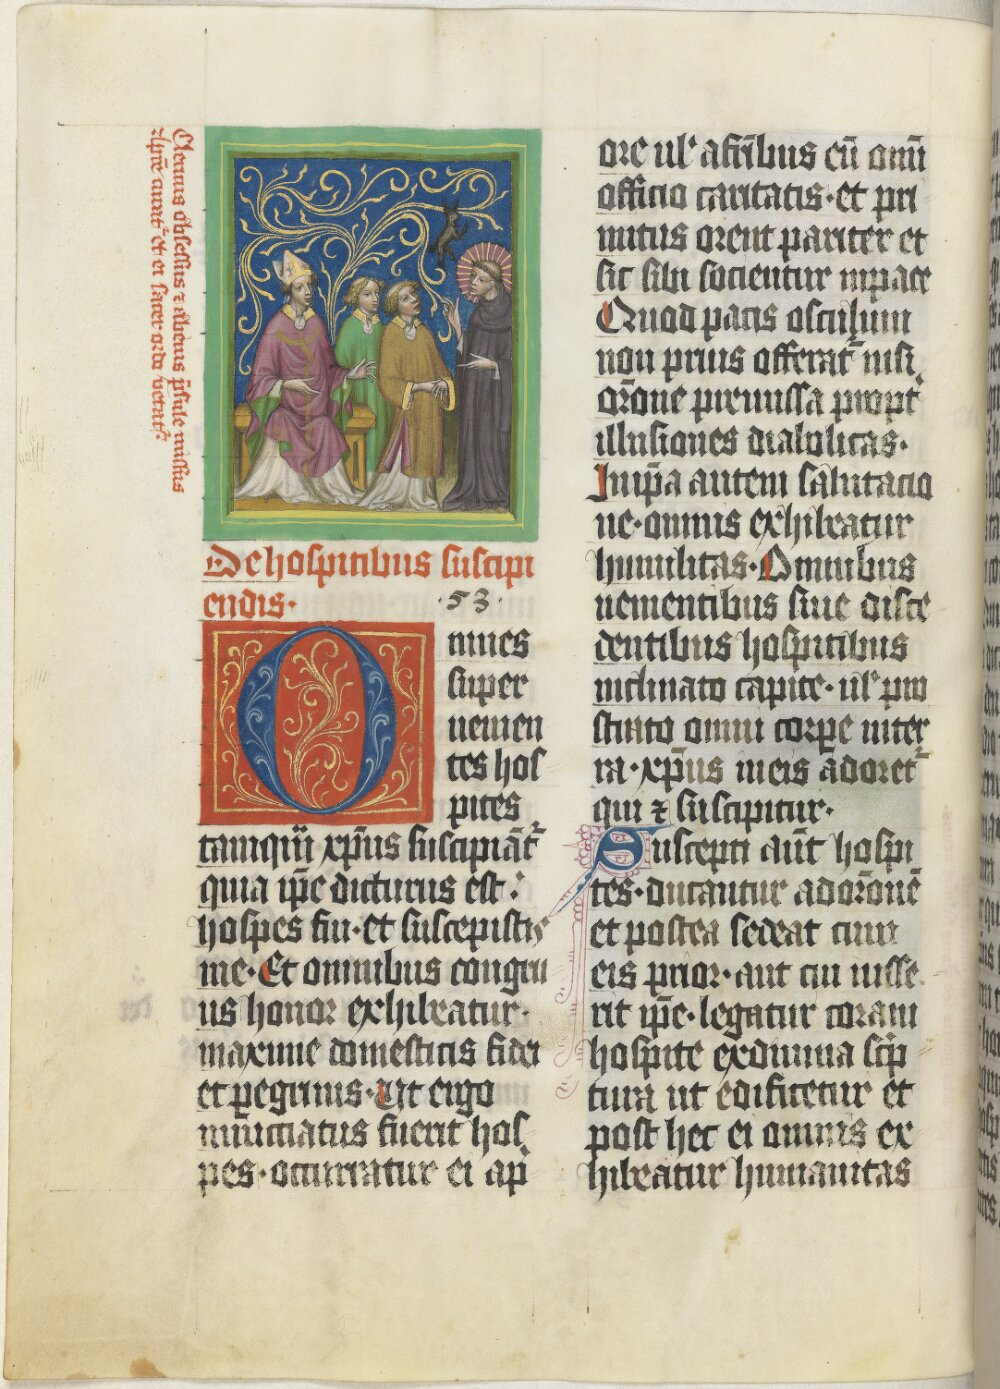 Clericus obsessus a abbatis psule missus
xpm curat et ei sacer ordo vetat
De hospitibus suscipi
endis· ·53·
Omnes
super
uenien
tes hos
pites
tamquā xp̄us suscipiāt᷑
quia ip̄e dicturus est·
hospes fui·et suscepistis
me·Et omnibus congru
us honor exhibeatur·
maxime domesticis fidei
et ꝑegrinis·Ut ergo
nūnciatus fuerit hos
pes·occurratur ei a pri
ore ul᷑ a frībus cū om̄i
officio caritatis·et pri
mitus orent pariter et
sic sibi socientur in pace
Quod pacis osculum
non prius offerat᷑ nisi
or̄one premissa propt᷑
illusiones diabolicas·
In ip̄a autem salutacio
ne·omnis exhibeatur
humilitas·Omnibus
uenientibus siue disce
dentibus hospitibus
inclinato capite·ul᷑ pro
strato omni corpe in ter
ra·xp̄us in eis adoret᷑
qui ⁊ suscipitur·
Suscepti aūt hospi
tes·ducantur ad or̄onē
et postea sedeat cum
eis prior·aut cui iusse
rit ip̄e·legatur coram
hospite ex diuina scrip
tura ut edificetur et
post hec ei omnis ex
hibeatur humanitas